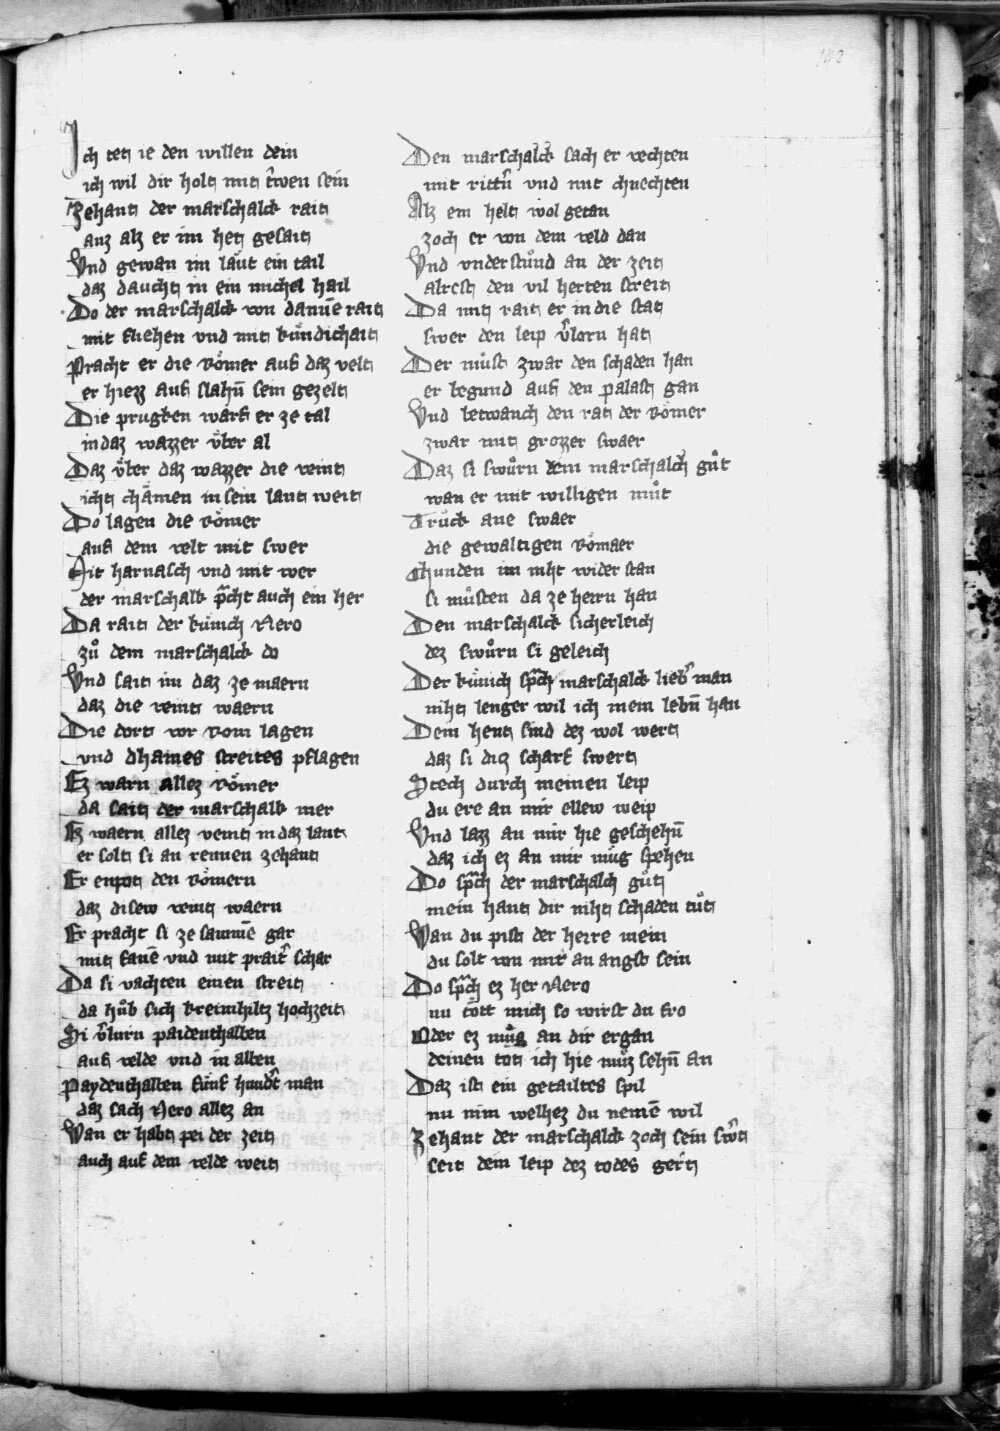 Ich tet ie den willen dein
ich wil dir holt mit trwen sein
Zehant der marschalck rait
anz alz er im het gesait
Vnd gewan im laut ein tail
daz daucht in ein michel hail
Do der marschalck von danne rait
mit fliehen vnd mit kündichait
Pracht er die Römer auf daz velt
er hiezz auf slahn sein gezelt
Die prugken warf er ze tal
in daz wazzer vber al
Daz vber daz wazzer die veint
icht chämen in sein lant weit
Do lagen die Römer
auf dem velt mit swer
Mit harnasch vnd mit wer
der marschalk pracht auch ein her
Da rait der künich Nero
zu dem marschalck do
Vnd sait im daz ze maern
daz die veint waern
Die dort vor Rom lagen
vnd dhaines streites pflagen
Ez warn allez Römer
da sait der marschalk mer
Ez waern allez veint in daz lant
er solt si an rennen zehant
Er enpot den Römern
daz disew veint waern
Er pracht si ze samme gar
mit fanē vnd mit praitr schar
Da si vachten einen streit
da hůb sich kreimhiltz hochzeit
Si vlurn paidenthalben
auf velde vnd in alben
Paydenthalben fünf hundt man
daz sach Nero allez an
Wan er habt pei der zeit
auch auf dem velde weit
Den marschalck sach er vechten
mit rittn vnd mit chnechten
Alz ein helt wol getan
zoch er von dem veld dan
Vnd vnderstůnd an der zeit
alrest den vil herten streit
Da mit rait er in die stat
swer den leip vlorn hat
Der můst zwar den schaden han
er begund auf den palast gan
Vnd betwanch den rat der Römer
zwar mit grozzer swaer
Daz si swůrn dem marschalch gůt
wan er mit willigen můt
Truck ane swaer
die gewaltigen Römaer
Chunden im niht wider stan
si müsten da ze herrn han
Den marschalck sicherleich
dez swůrn si geleich
Der künich sprach marschalck liebr man
niht lenger wil ich mein lebn han
Dein hent sind dez wol wert
daz si diz scharf swert
Stech durch meinen leip
du ere an mir ellew weip
Vnd lazz an mir hie geschehn
daz ich ez an mir müg spehen
Do sprach der marschalch gůt
mein hant dir niht schaden tůt
Wan du pist der herre mein
du solt von mir an angst sein
Do sprach ez her Nero
nu tött mich so wirst du fro
Oder ez můz an dir ergan
deinen tot ich hie můz sehn an
Daz ist ein getailtes spil
nu nim welhez du nemē wil
Zehant der marschalck zoch sein swt
seit dein leip dez todes gert